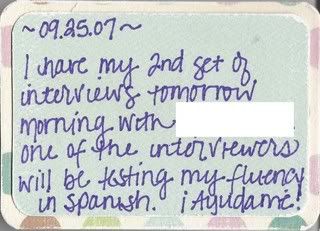 ~09.25.07~
I have my 2nd set of
interviews tomorrow
morning with
one of the interviewers
will be testing my fluency
in spanish. ¡Ayudame!